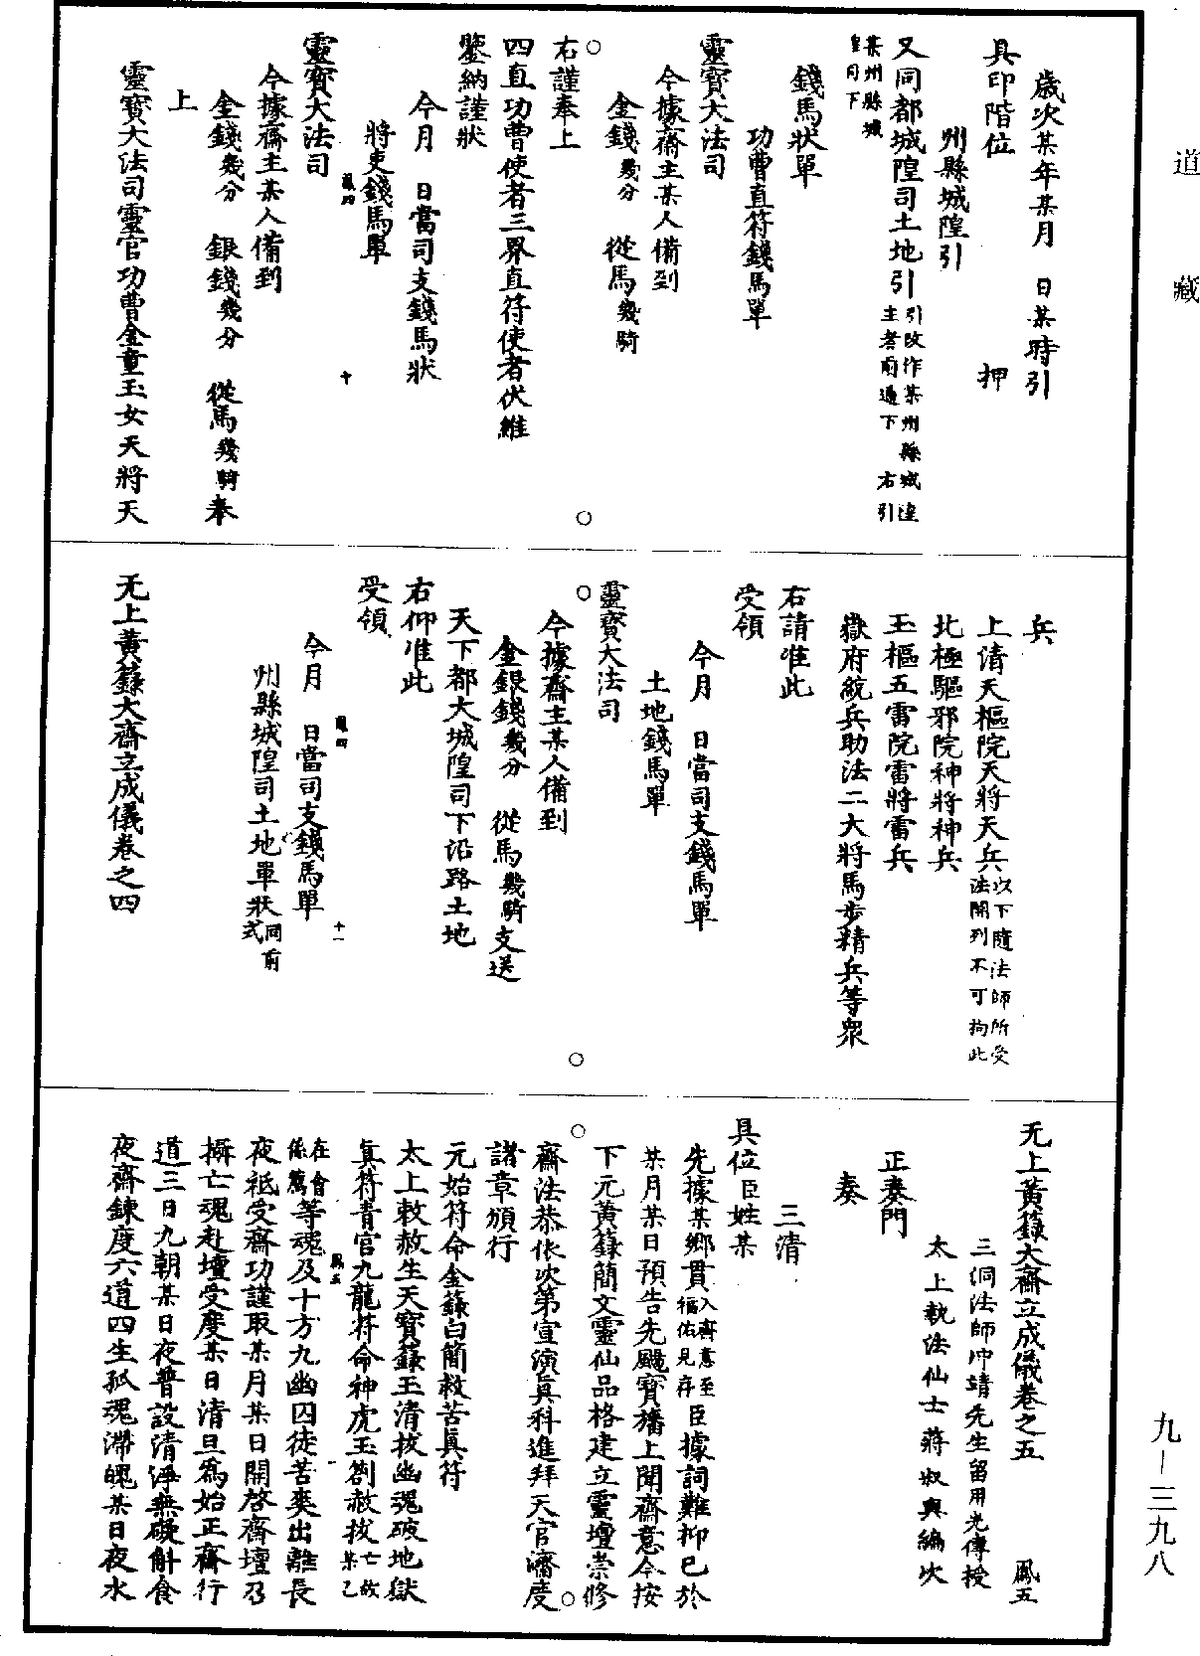 道藏
歲次某年某月　日某時引
具印階位　　　　押
州縣城隍引
又同都城隍司土地引引改作某州縣城隍主者前過下　右引
某州縣城隍司下
錢馬狀單
功曹直符錢馬單
靈寶大法司
今據齋主某人備到
金錢幾分　從馬幾騎
右謹奉上
四直功曹使者三界直符使者伏維
鑒納謹狀
今月　日當司支錢馬狀
將吏錢馬單
鳳四　十
靈寶大法司
今據齋主某人備到
金錢幾分　銀錢幾分　從馬幾騎奉
上
靈寶大法司靈官功曹金童玉女天將天
兵
上清天樞院天將天兵以下隨法師所受法開列不可拘此
北極驅邪院神將神兵
玉樞五雷院雷將雷兵
嶽府統兵助法二大將馬步精兵等衆
右請准此
受領
今月　日當司支錢馬單
土地錢馬單
靈寶大法司
今據齋主某人備到
金銀錢幾分　從馬幾騎支送
天下都大城隍司下沿路土地
右仰准此
受領
鳳四　十一
今月　日當司支錢馬單
州縣城隍司土地單狀同前式
无上黃籙大齋立成儀卷之四
无上黃籙大齋立成儀卷之五　鳳五
三洞法師冲靖先生留用光傳授
太上執法仙士蔣叔輿編次
正奏門
奏
三清
具位臣姓某
先據某鄉貫入齋意至福佑見存臣據詞難抑已於
某月某日預告先颺寶旛上聞齋意今按
下元黃籙簡文靈仙品格建立靈壇崇修
齋法恭依次第宣演眞科進拜天官濟度
諸章頒行
元始符命金籙白簡救苦眞符
太上敕赦生天寶籙玉清拔幽魂破地獄
眞符青宮九龍符命神虎玉劄赦拔亡故某乙
鳳五
在會係薦等魂及十方九幽囚徒苦爽出離長
夜祗受齋功謹取某月某日開啓齋壇乃
攝亡魂赴壇受度某日清旦爲始正齋行
道三日九朝某日夜普設清淨無礙斛食
夜齋鍊度六道四生孤魂滯魄某日夜水
九—三九八